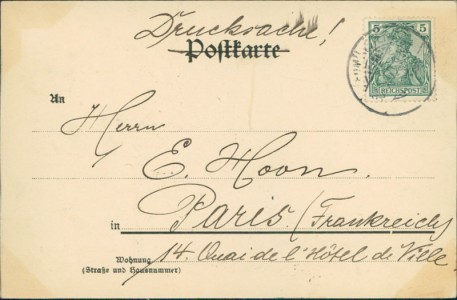 Drucksache!
Postkarte
5 5
REICHSPOST
An
Herrn
E. Hoon.
in Paris. (Frankreich)
Wohnung
(Straße und Hausnummer)
14. Quai de l'Hôtel de Ville